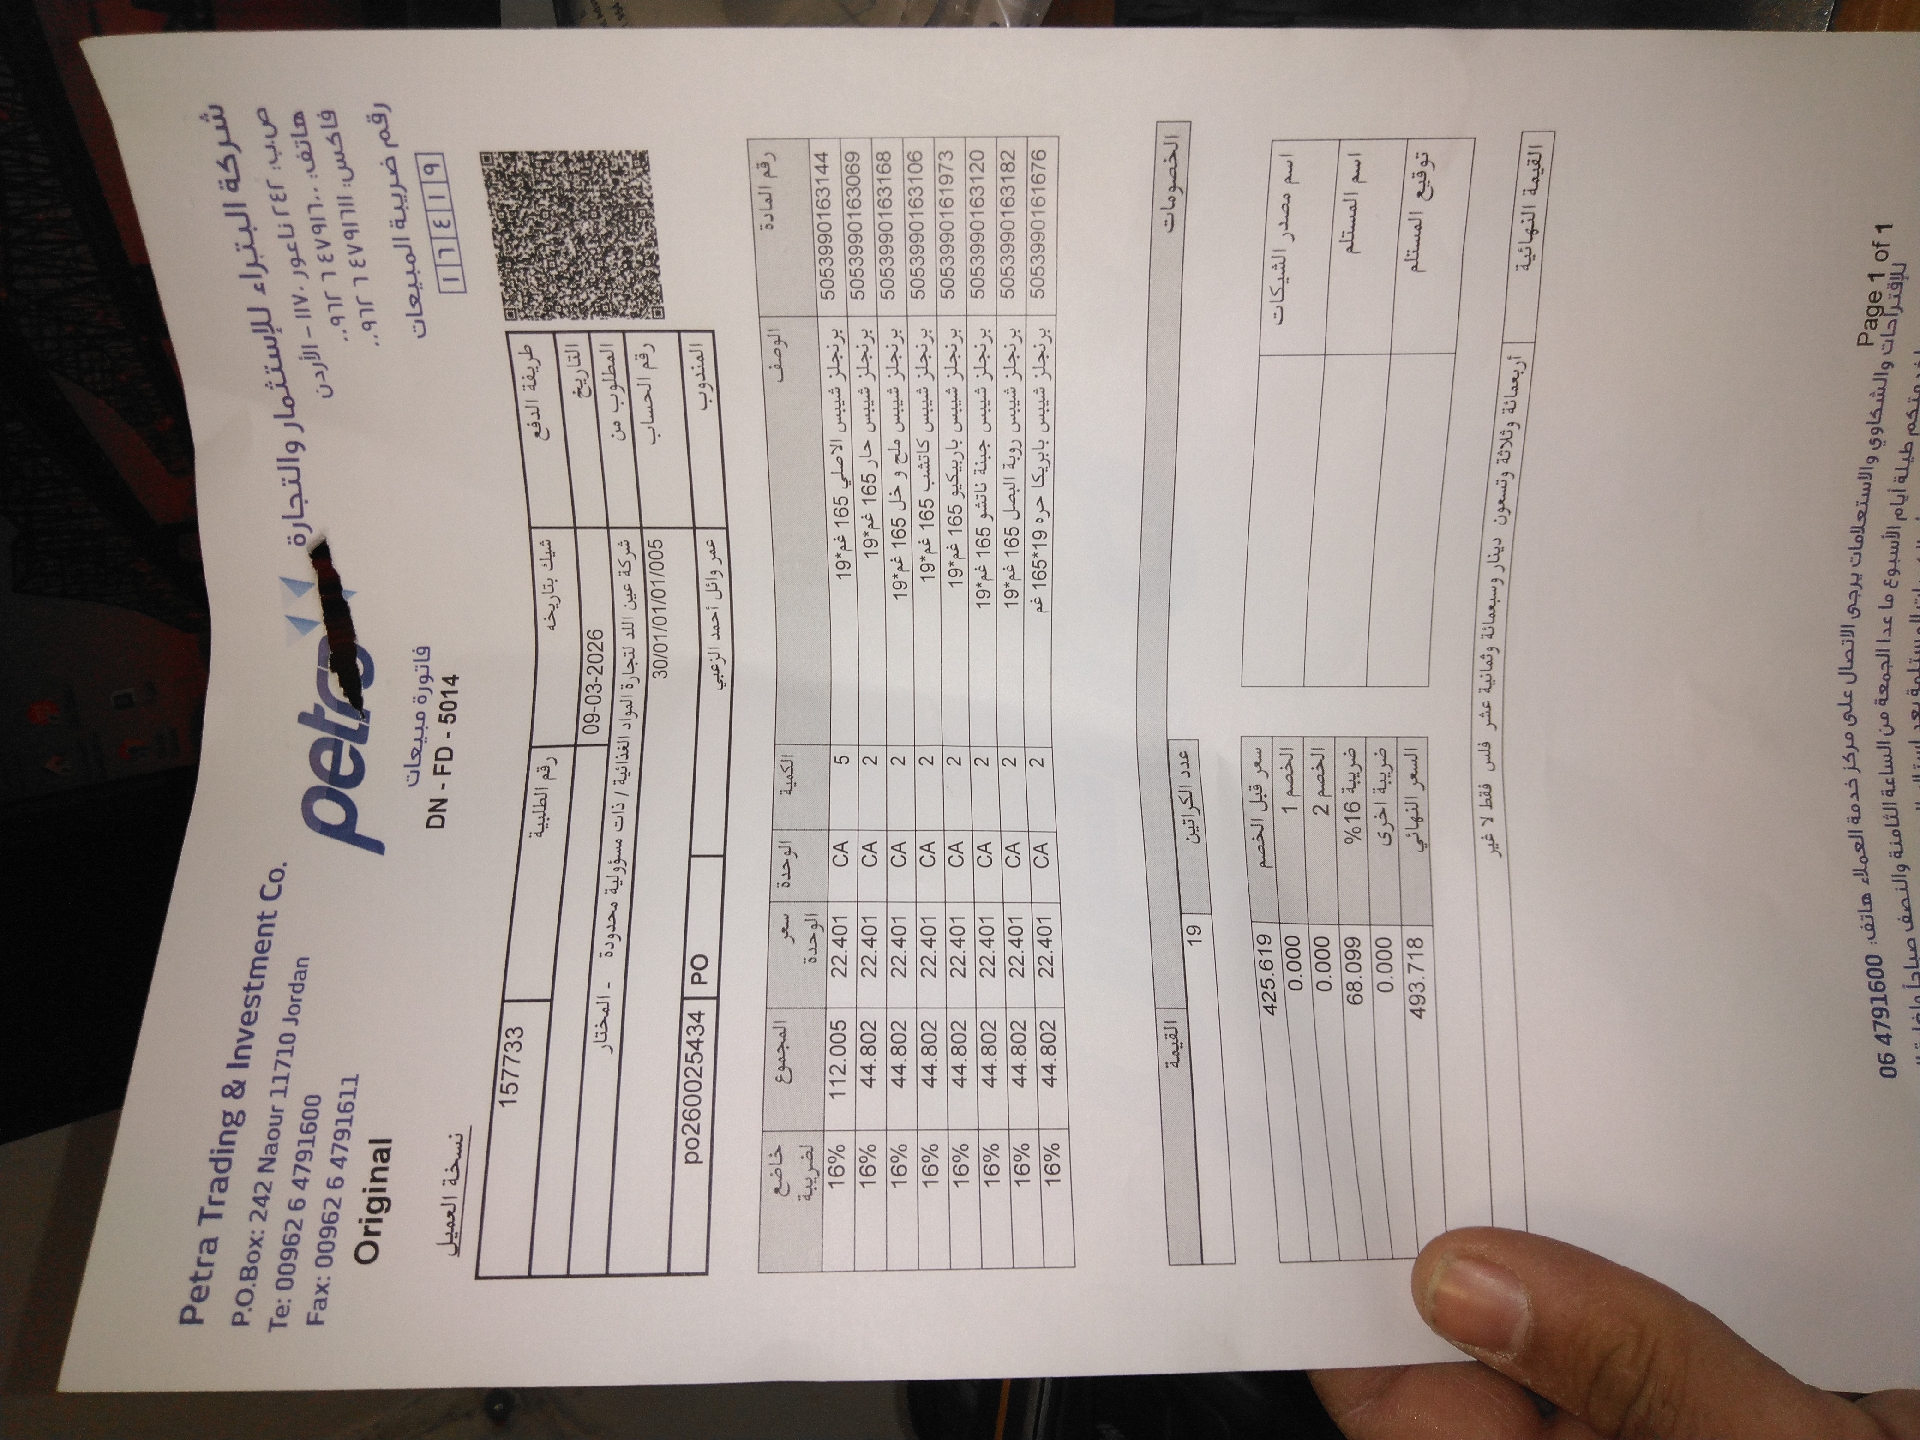 Petra Trading & Investment Co.
P.O.Box: 242 Naour 11710 Jordan
Te: 00962 6 4791600
Fax: 00962 6 4791611
Original
شركة البتراء للإستثمار والتجارة
ص.ب: ٢٤٢ ناعور ١١٧١٠ - الأردن
هاتف: ٠٠٩٦٢ ٦ ٤٧٩١٦٠٠
فاكس: ٠٠٩٦٢ ٦ ٤٧٩١٦١١
رقم ضريبة المبيعات
١٦٤١٩
petra
فاتورة مبيعات
DN - FD - 5014
نسخة العميل
طريقة الدفع شيك بتاريخه رقم الطلبية 157733
التاريخ 09-03-2026
المطلوب من شركة عين اللد لتجارة المواد الغذائية / ذات مسؤولية محدودة - المختار
رقم الحساب 30/01/01/01/005
المندوب عمر وائل أحمد الزعبي PO po260025434
رقم المادة الوصف الكمية الوحدة سعر الوحدة المجموع خاضع لضريبة
5053990163144 برنجلز شيبس الاصلي 165 غم*19 5 CA 22.401 112.005 16%
5053990163069 برنجلز شيبس حار 165 غم*19 2 CA 22.401 44.802 16%
5053990163168 برنجلز شيبس ملح و خل 165 غم*19 2 CA 22.401 44.802 16%
5053990163106 برنجلز شيبس كاتشب 165 غم*19 2 CA 22.401 44.802 16%
5053990161973 برنجلز شيبس باربيكيو 165 غم*19 2 CA 22.401 44.802 16%
5053990163120 برنجلز شيبس جبنة ناتشو 165 غم*19 2 CA 22.401 44.802 16%
5053990163182 برنجلز شيبس روبة البصل 165 غم*19 2 CA 22.401 44.802 16%
5053990161676 برنجلز شيبس بابريكا حره 19*165 غم 2 CA 22.401 44.802 16%
الخصومات القيمة
عدد الكراتين 19
اسم مصدر الشيكات
اسم المستلم
توقيع المستلم
سعر قبل الخصم 425.619
الخصم 1 0.000
الخصم 2 0.000
ضريبة 16% 68.099
ضريبة اخرى 0.000
السعر النهائي 493.718
القيمة النهائية أربعمائة وثلاثة وتسعون دينار وسبعمائة وثمانية عشر فلس فقط لا غير
Page 1 of 1
للإقتراحات والشكاوي والاستعلامات يرجى الاتصال على مركز خدمة العملاء هاتف: 06 4791600
طيلة أيام الأسبوع ما عدا الجمعة من الساعة الثامنة والنصف صباحاً